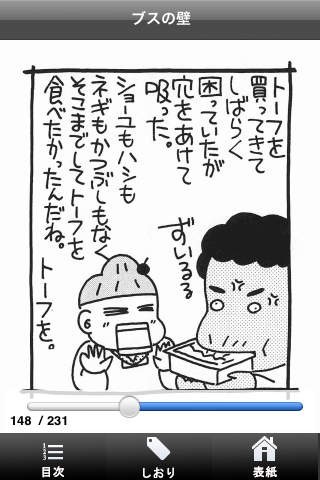 ブスの壁
トーフを
買ってきて
しばらく
困っていたが
穴をあけて
吸った。
ショーユもハシも
ネギもかつぶしもなく
そこまでしてトーフを
食べたかったんだね。トーフを。
ずいるるる
148 / 231
目次
しおり
表紙